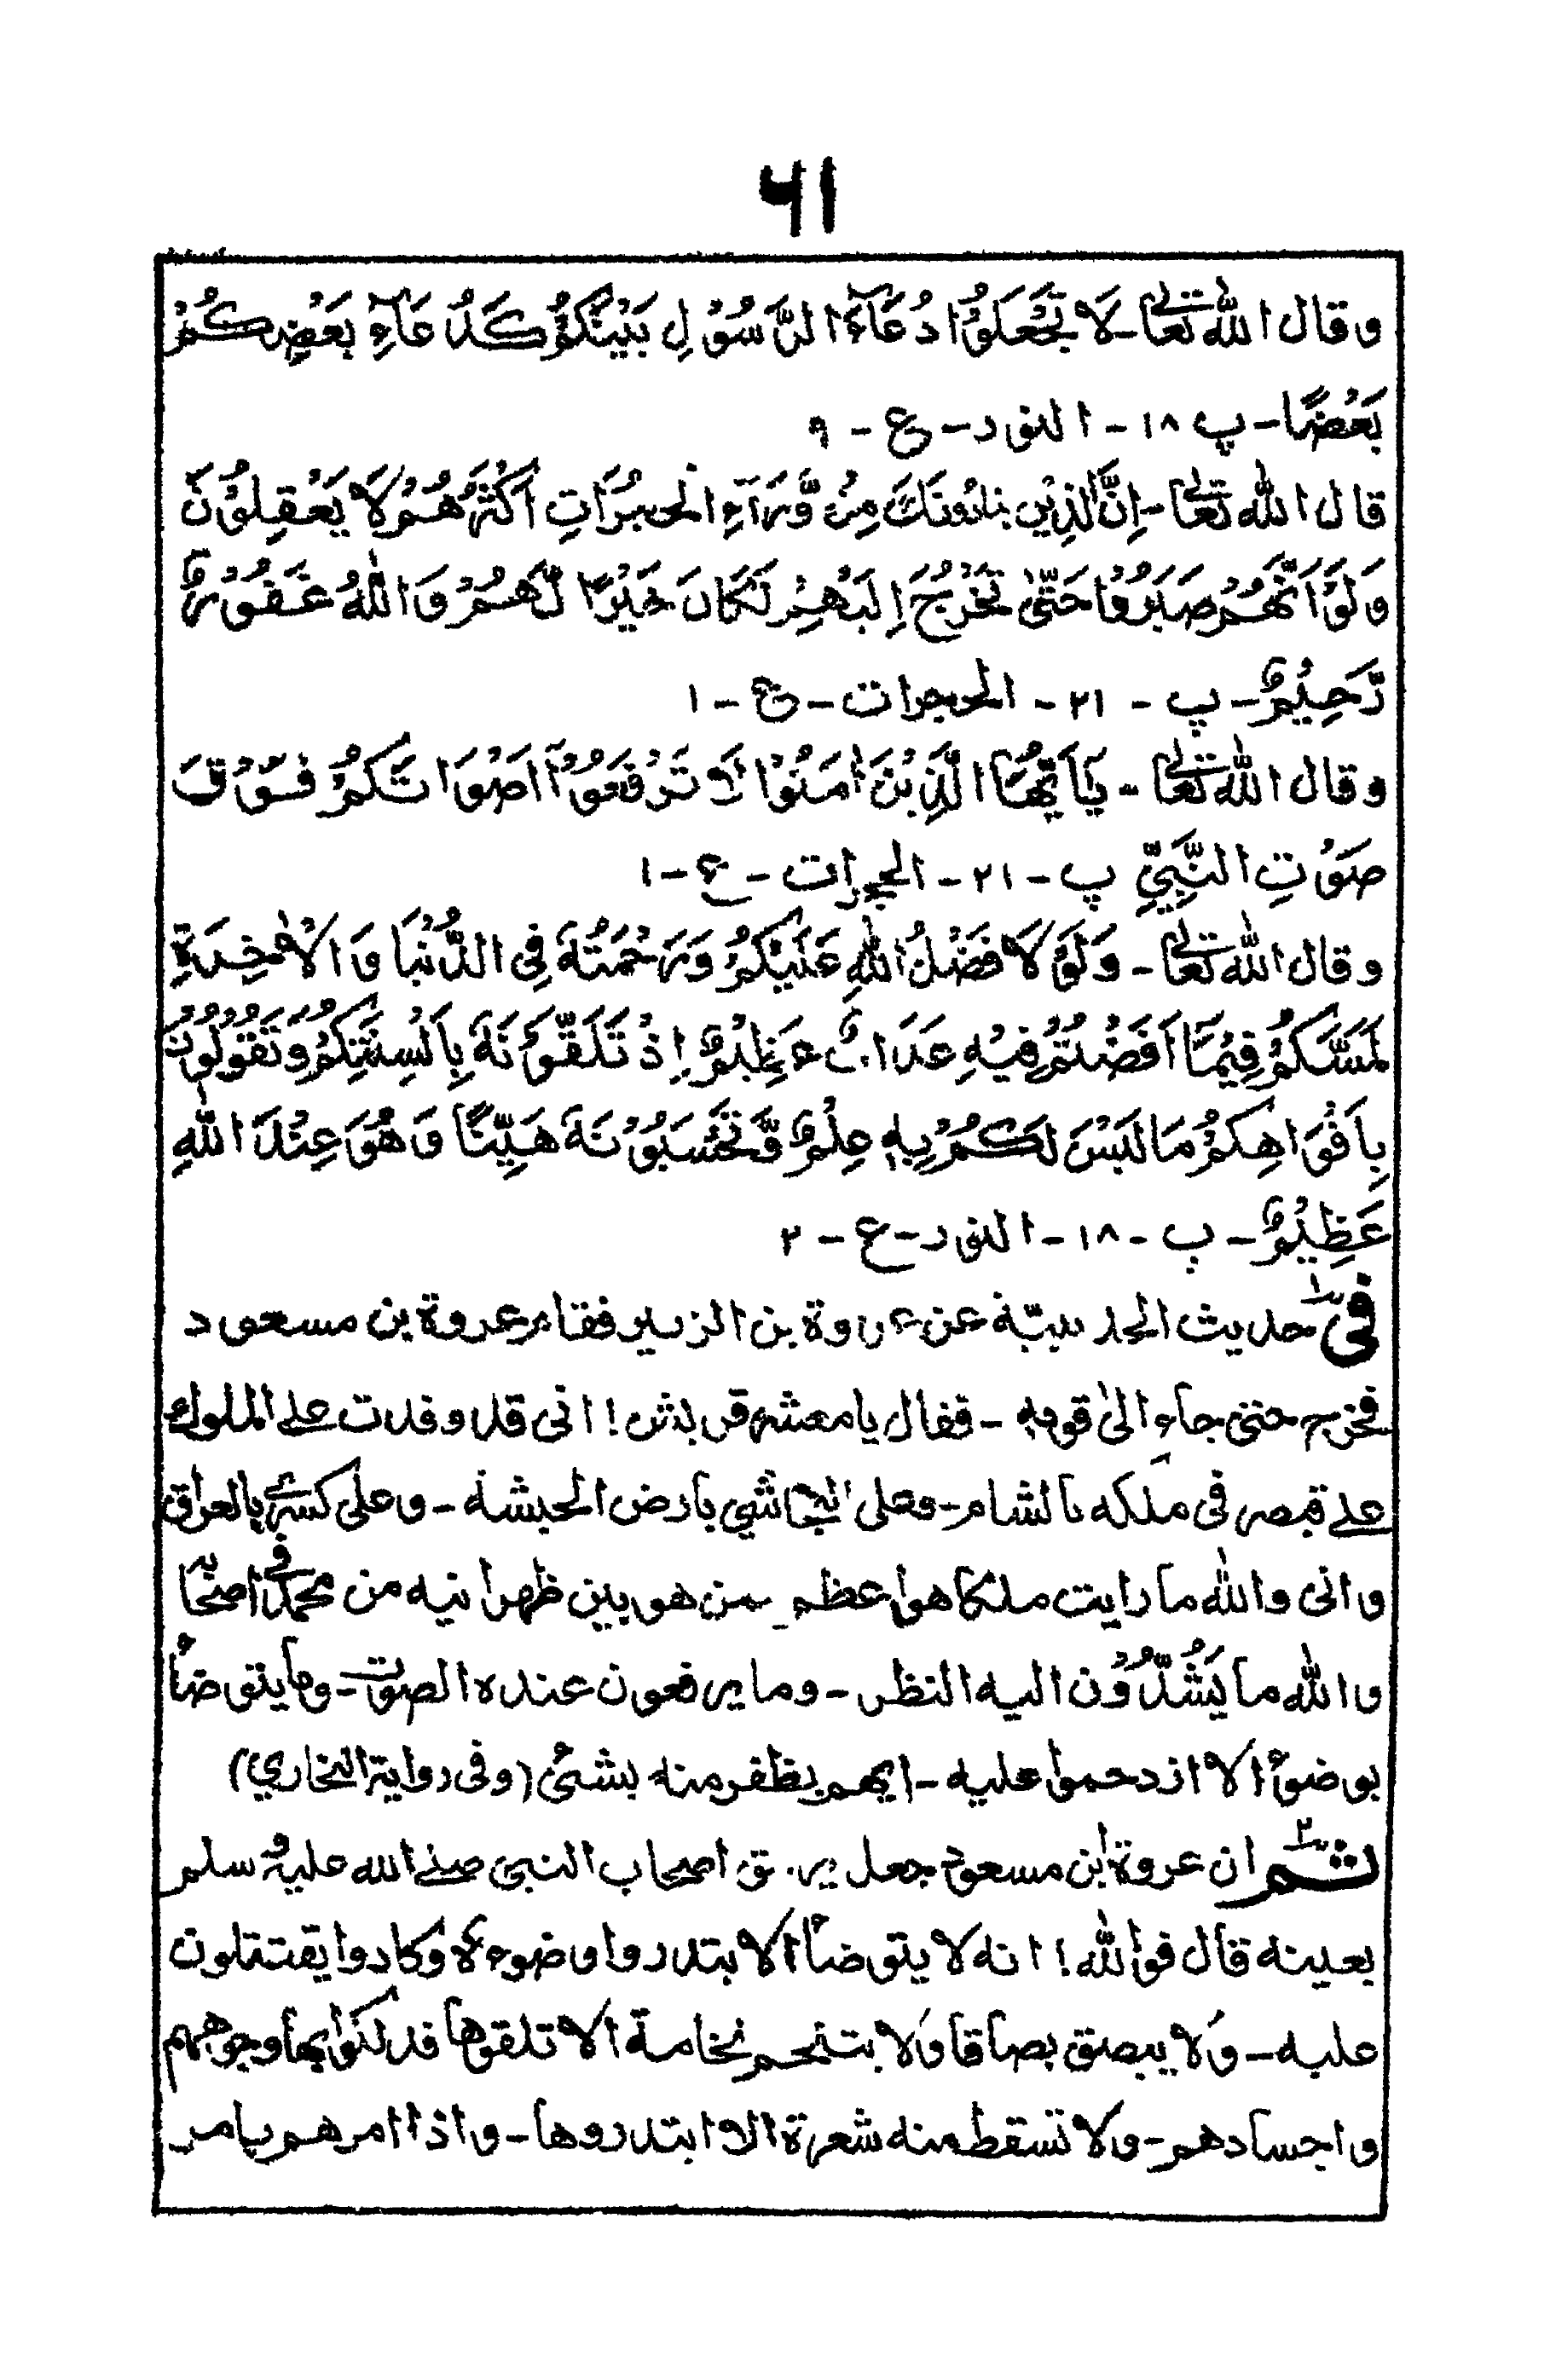 ٦١
وقال الله تعالى۔ لَا تَجْعَلُوْا دُعَآءَ الرَّسُوْلِ بَيْنَكُمْ كَدُعَآءِ بَعْضِكُمْ
بَعْضًا۔ پ ١٨ - النور - ع - ٩
قال الله تعالى۔ اِنَّ الَّذِيْنَ يُنَادُوْنَكَ مِنْ وَّرَآءِ الْحُجُرَاتِ اَكْثَرُهُمْ لَا يَعْقِلُوْنَ
وَلَوْ اَنَّهُمْ صَبَرُوْا حَتّٰى تَخْرُجَ اِلَيْهِمْ لَكَانَ خَيْرًا لَّهُمْ وَاللّٰهُ غَفُوْرٌ
رَّحِيْمٌ۔ پ - ٢١ - الحجرات - ع - ١
وقال الله تعالى - يٰاَيُّهَا الَّذِيْنَ اٰمَنُوْا لَا تَرْفَعُوْۤا اَصْوَاتَكُمْ فَوْقَ
صَوْتِ النَّبِيِّ پ - ٢١ - الحجرات - ع - ١
وقال الله تعالى - وَلَوْ لَا فَضْلُ اللّٰهِ عَلَيْكُمْ وَرَحْمَتُهٗ فِى الدُّنْيَا وَالْاٰخِرَةِ
لَمَسَّكُمْ فِيْمَا اَفَضْتُمْ فِيْهِ عَذَابٌ عَظِيْمٌ اِذْ تَلَقَّوْنَهٗ بِاَلْسِنَتِكُمْ وَتَقُوْلُوْنَ
بِاَفْوَاهِكُمْ مَا لَيْسَ لَكُمْ بِهٖ عِلْمٌ وَّتَحْسَبُوْنَهٗ هَيِّنًا وَهُوَ عِنْدَ اللّٰهِ
عَظِيْمٌ - پ - ١٨ - النور - ع - ٢
فى١ حديث الحديبيّة عن عروة بن الزبير فقام عروة بن مسعود
فخرج حتى جاء الىٰ قومه - فقال يا معشر قريش! انى قد وفدت على الملوك
على قيصر فى ملكه بالشام - وعلى النجاشي بارض الحبشة - وعلى كسرىٰ بالعراق
وانى والله ما رايت ملكا هو اعظم ممن هو بين ظهرانيه من محمد فى اصحابه
والله ما يَشُدُّوْن اليه النظر - وما يرفعون عنده الصوت - وما يتوضأ
بوضوء الا ازدحموا عليه - ايهم يظفر منه بشئ (وفى رواية البخاري)
ثم٢ ان عروة ابن مسعود جعل يرمق اصحاب النبى صلى الله عليه وسلم
بعينه قال فوالله! انه لا يتوضأ الا ابتدروا وضوءه وكادوا يقتتلون
عليه - ولا يبصق بصاقا ولا يتنخم نخامة الا تلقوها فدلكوا بها وجوههم
واجسادهم - ولا تسقط منه شعرة الا ابتدروها - واذا امرهم بامر